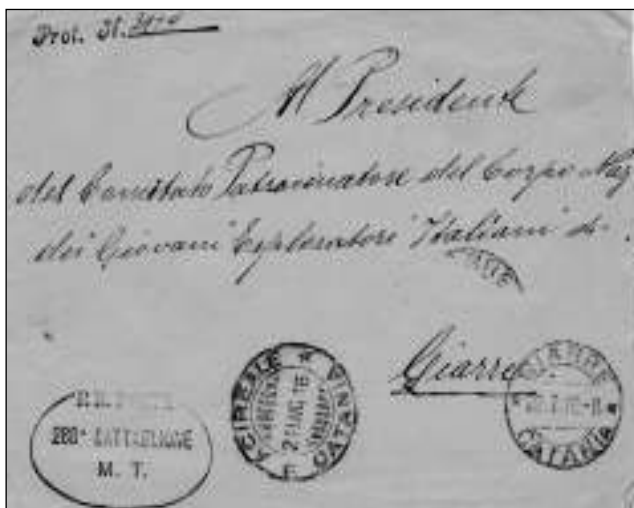 Prot. N.
Al Presidente
del Comitato Patrocinatore del Corpo Naz
dei Giovani Esploratori Italiani di
Giarre
288° BATTAGLIONE
M. T.
ACIREALE * CATANIA
GIARRE
CATANIA